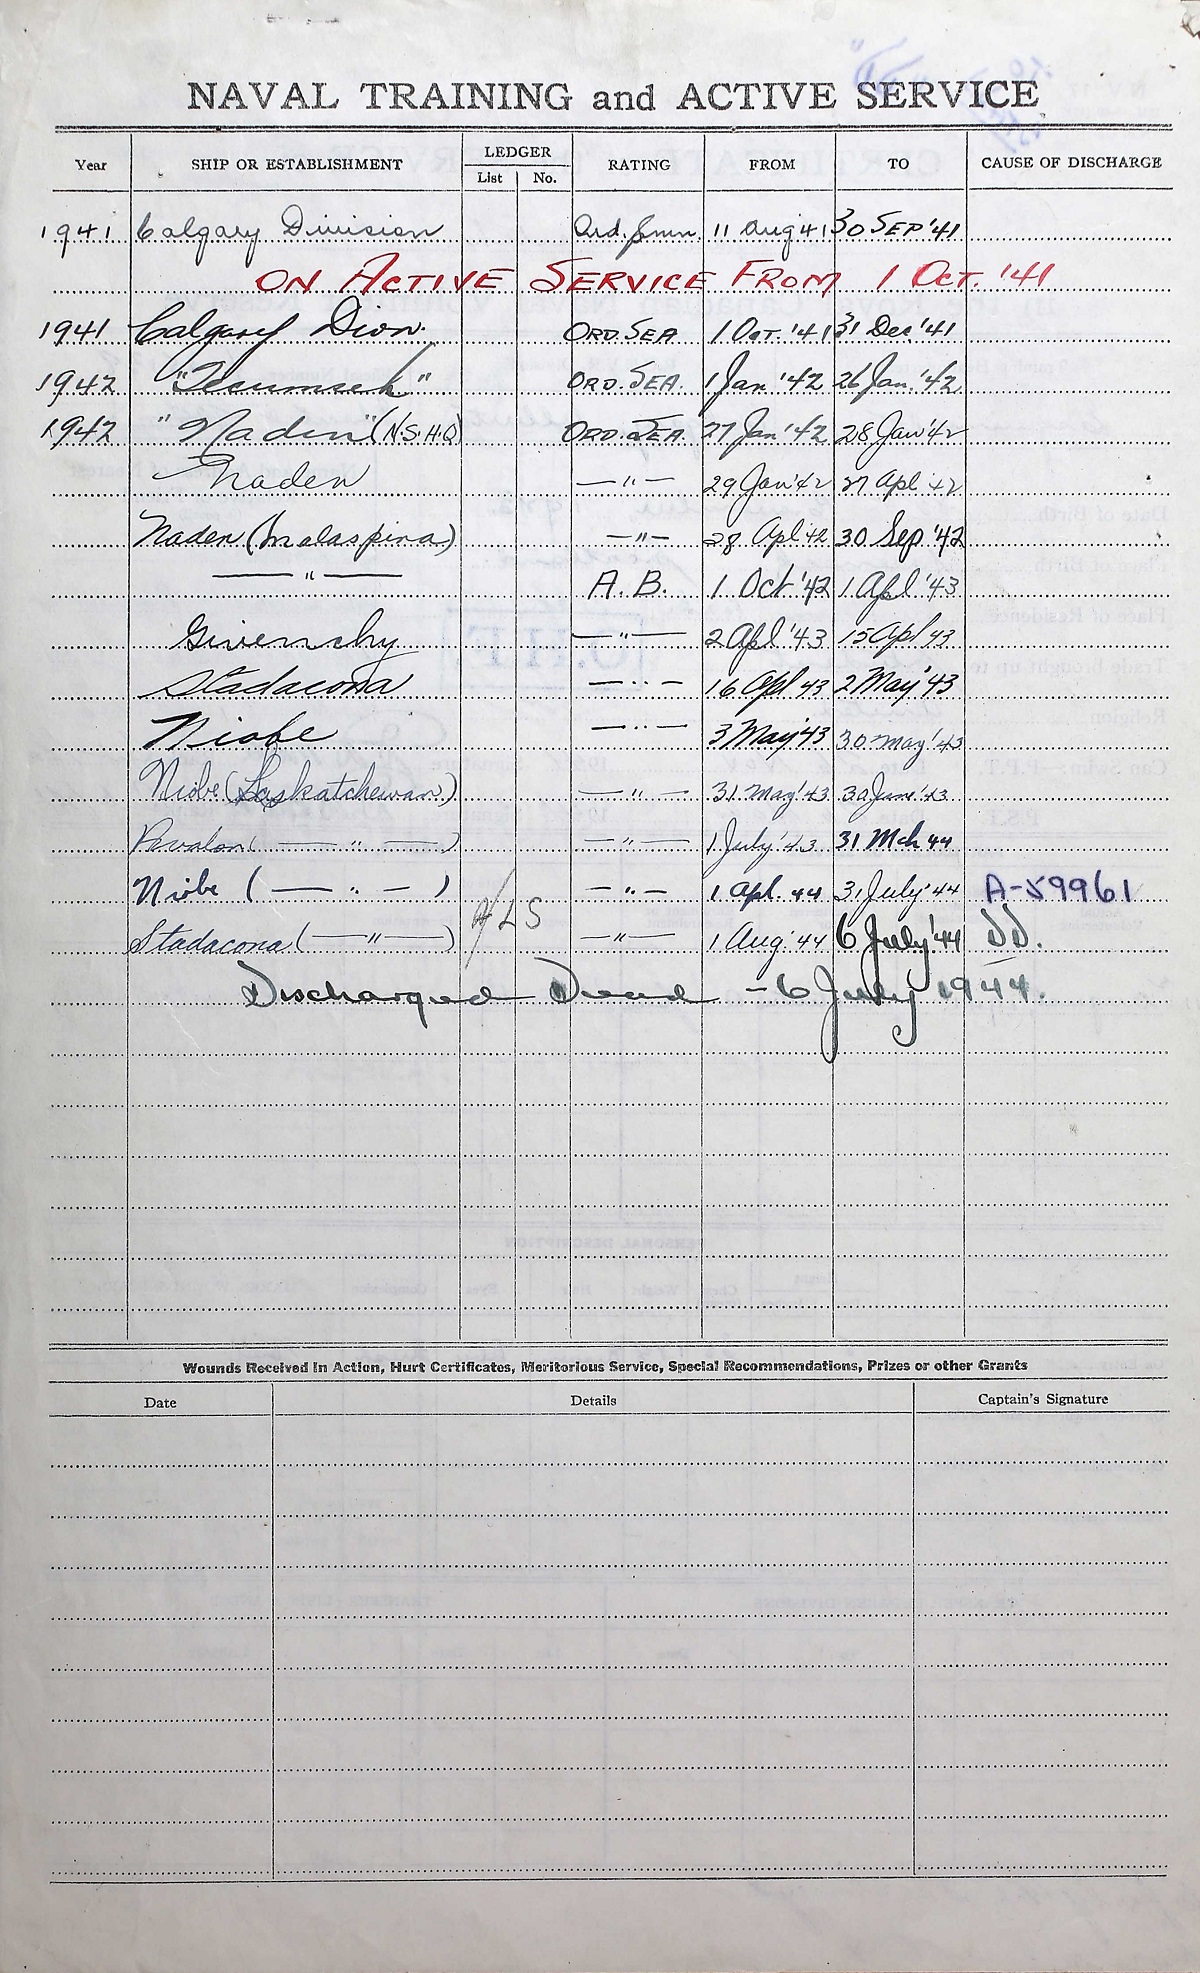 NAVAL TRAINING and ACTIVE SERVICE
Year SHIP OR ESTABLISHMENT LEDGER List No. RATING FROM TO CAUSE OF DISCHARGE
1941 Calgary Division Ord. Smn. 11 Aug 41 30 SEP '41
ON ACTIVE SERVICE FROM 1 OCT. '41
1941 Calgary Divn. ORD. SEA 1 Oct. '41 31 Dec '41
1942 "Tecumseh" ORD. SEA. 1 Jan '42 26 Jan. '42
1942 "Naden" (N.S.H.Q) ORD. SEA. 27 Jan '42 28 Jan '42
Naden — " — 29 Jan '42 27 Apl 42
Naden (Malaspina) — " — 28 Apl 42 30 Sep '42
— " — A. B. 1 Oct '42 1 Apl '43
Givenchy — " — 2 Apl '43 15 Apl 43
Stadacona — " — 16 Apl 43 2 May '43
Niobe — " — 3 May '43 30 May '43
Niobe (Saskatchewan) — " — 31 May '43 30 June '43
Avalon ( — " — ) — " — 1 July '43 31 Mch 44
Niobe ( — " — ) — " — 1 Apl. 44 31 July '44 A-59961
Stadacona ( — " — ) A/LS — " — 1 Aug '44 6 July '44 DD.
Discharged Dead - 6 July 1944.
Wounds Received in Action, Hurt Certificates, Meritorious Service, Special Recommendations, Prizes or other Grants
Date Details Captain's Signature